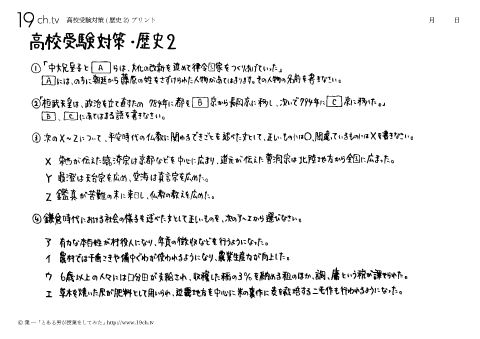 19ch.tv 高校受験対策(歴史2)プリント 月 日
高校受験対策・歴史2
①「中大兄皇子と A らは、大化の改新を進めて律令国家をつくりあげていった」
A には、のちに朝廷から藤原の姓をさずけられた人物があてはまります。その人物の名前を書きなさい。
②「桓武天皇は、政治を立て直すため 784年に都を B 京から長岡京に移し、次いで794年に C 京に移した。」
B、C にあてはまる語を書きなさい。
③ 次のX~Zについて、平安時代の仏教に関するできごとを述べた文として、正しいものには〇、間違っているものには×を書きなさい。
X 栄西が伝えた臨済宗は京都などを中心に広まり、道元が伝えた曹洞宗は北陸地方から全国に広まった。
Y 最澄は天台宗を広め、空海は真言宗を広めた。
Z 鑑真が苦難の末に来日し、仏教の教えを広めた。
④ 鎌倉時代における社会の様子を述べた文として正しいものを、次のア~エから選びなさい。
ア 有力な本百姓が村役人になり、年貢の徴収などを行うようになった。
イ 農村では千歯こきや備中ぐわが使われるようになり、農業生産力が向上した。
ウ 6歳以上の人々には口分田が支給され、収穫した稲の3%を納める租のほか、調、庸という税が課せられた。
エ 草木を焼いた灰が肥料として用いられ、近畿地方を中心に米の裏作に麦を栽培する二毛作も行われるようになった。
© 葉一「とある男が授業をしてみた」http://www.19ch.tv